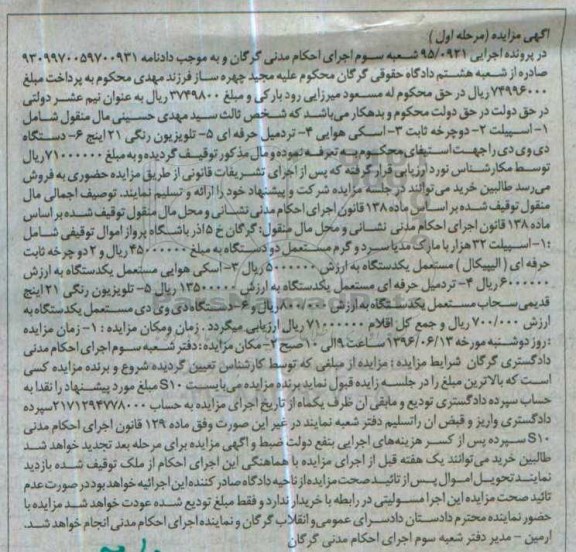 آگهی مزایده (مرحله اول)
در پرونده اجرایی ۹۵/۰۹۲۱ شعبه سوم اجرای احکام مدنی گرگان و به موجب دادنامه ۹۳۰۹۹۷۰۰۵۹۷۰۰۹۳۱
صادره از شعبه هشتم دادگاه حقوقی گرگان محکوم علیه مجید چهره ساز فرزند مهدی محکوم به پرداخت مبلغ
۷۴۹۹۶۰۰۰ ریال در حق محکوم له مسعود میرزایی رود بارکی و مبلغ ۳۷۴۹۸۰۰ ریال به عنوان نیم عشر دولتی
در حق دولت در حق دولت محکوم و بدهکار می‌باشد که شخص ثالث سید مهدی حسینی مال منقول شامل
۱- اسپیلت ۲- دوچرخه ثابت ۳- اسکی هوایی ۴- تردمیل حرفه ای ۵- تلویزیون رنگی ۲۱ اینچ ۶- دستگاه
دی وی دی را جهت استیفای محکوم به تعرفه نموده و مال مذکور توقیف گردیده و به مبلغ ۷۱۰۰۰۰۰۰ ریال
توسط مکارشناس نورد ارزیابی قرار گرفته که پس از اجرای تشریفات قانونی از طریق مزایده حضوری به فروش
می‌رسد طالبین خرید می توانند در جلسه مزایده شرکت و پیشنهاد خود را ارائه و تسلیم نمایند. توصیف اجمالی مال
منقول توقیف شده بر اساس ماده ۱۳۸ قانون اجرای احکام مدنی نشانی و محل مال منقول توقیف شده بر اساس
ماده ۱۳۸ قانون اجرای احکام مدنی نشانی و محل مال منقول: گرگان خ ۵ آذر باشگاه پرواز اموال توقیفی شامل
:۱- اسپیلت ۳۲ هزار با مارک مدیا سرد و گرم مستعمل دو دستگاه به مبلغ ۴۵۰۰۰۰۰۰ ریال و ۲ دو چرخه ثابت
حرفه ای (الیپیکال) مستعمل یکدستگاه به ارزش ۵۰۰۰۰۰۰ ریال ۳- اسکی هوایی مستعمل یکدستگاه به ارزش
۶۰۰۰۰۰۰ ریال ۴- تردمیل حرفه ای مستعمل یکدستگاه به ارزش ۱۳۵۰۰۰۰۰ ریال ۵- تلویزیون رنگی ۲۱ اینچ
قدیمی سحاب مستعمل یکدستگاه به ارزش ریال و ۶- دستگاه دی وی دی مستعمل یکدستگاه به
ارزش ۷۰۰/۰۰۰ ریال و جمع کل اقلام ۷۱۰۰۰۰۰۰ ریال ارزیابی میگردد. زمان ومکان مزایده : ۱- زمان مزایده
:روز دوشنبه مورخه ۱۳۹۶/۰۶/۱۳ ساعت ۹ الی ۱۰ صبح ۲- مکان مزایده :دفتر شعبه سوم اجرای احکام مدنی
دادگستری گرگان شرایط مزایده : مزایده از مبلغی که توسط کارشناس تعیین گردیده شروع و برنده مزایده کسی
است که بالاترین مبلغ را در جلسه زایده قبول نماید برنده مزایده می‌بایست S۱۰ مبلغ مورد پیشنهاد را نقدا به
حساب سپرده دادگستری تودیع و مابقی آن ظرف یکماه از تاریخ اجرای مزایده به حساب ۲۱۷۱۲۹۴۷۷۸۰۰۰ سپرده
دادگستری واریز و قبض آن راتسلیم دفتر شعبه نمایند در غیر این صورت وفق ماده ۱۲۹ قانون اجرای احکام مدنی
S۱۰ سپرده پس از کسر هزینه‌های اجرایی بنفع دولت ضبط و آگهی مزایده برای مرحله بعد تجدید خواهد شد
طالبین خرید می‌توانند یک هفته قبل از اجرای مزایده با هماهنگی این اجرای احکام از ملک توقیف شده بازدید
نمایند تحویل اموال پس از تائید صحت مزایده از ناحیه دادگاه صادر کننده این اجرائیه خواهد بود در صورت عدم
تائید صحت مزایده این اجرا مسولیتی در رابطه با خریدار ندارد و فقط مبلغ تودیع شده عودت خواهد شد مزایده با
حضور نماینده محترم دادستان دادسرای عمومی و انقلاب گرگان و نماینده اجرای احکام مدنی انجام خواهد شد.
آرمین - مدیر دفتر شعبه سوم اجرای احکام مدنی گرگان